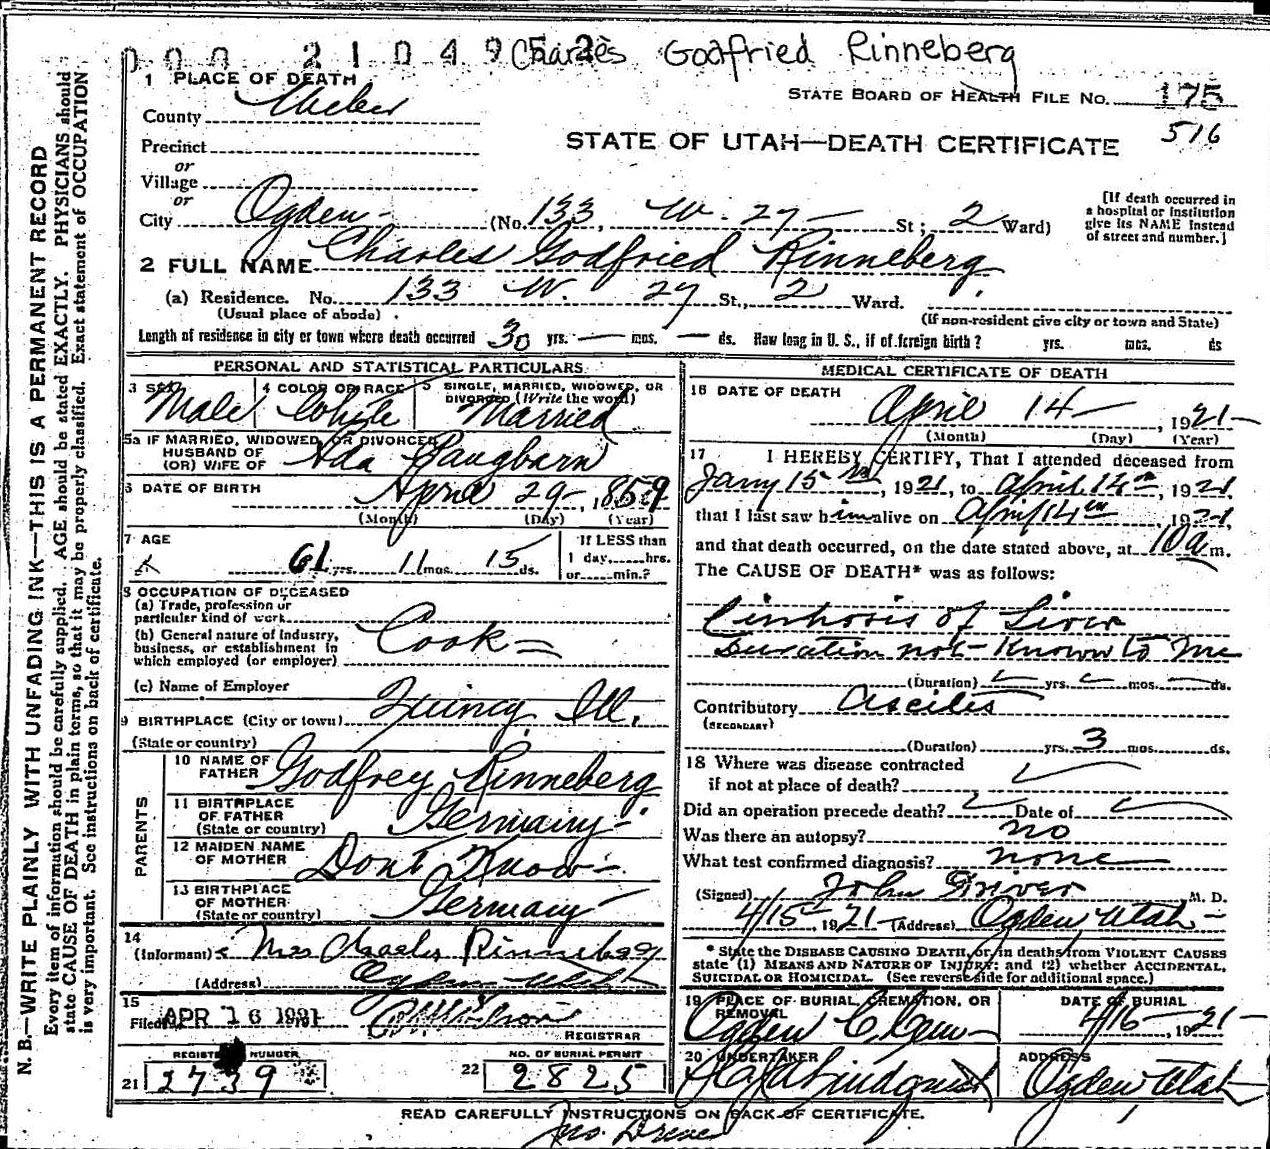 000 21049 52 Charles Godfried Rinneberg
1 PLACE OF DEATH
STATE BOARD OF HEALTH FILE NO. 175
516
County Weber
STATE OF UTAH—DEATH CERTIFICATE
Precinct
or
Village
or
City Ogden - (No. 133, W. 27 — St; 2 Ward)
[If death occurred in
a hospital or institution
give its NAME instead
of street and number.]
2 FULL NAME Charles Godfried Rinneberg
(a) Residence. No. 133 W. 27 St., 2 Ward.
(Usual place of abode)
(If non-resident give city or town and State)
Length of residence in city or town where death occurred 30 yrs. — mos. — ds. How long in U. S., if of foreign birth? yrs. mos. ds
PERSONAL AND STATISTICAL PARTICULARS
3 SEX Male
4 COLOR OR RACE White
5 SINGLE, MARRIED, WIDOWED, OR
DIVORCED (Write the word)
Married
5a IF MARRIED, WIDOWED, OR DIVORCED
HUSBAND OF
(OR) WIFE OF Ada Pangburn
6 DATE OF BIRTH April 29-, 1859
(Month) (Day) (Year)
7 AGE
61 yrs. 11 mos. 15 ds.
If LESS than
1 day, hrs.
or min.?
8 OCCUPATION OF DECEASED
(a) Trade, profession or
particular kind of work
(b) General nature of industry,
business, or establishment in
which employed (or employer)
Cook
(c) Name of Employer
9 BIRTHPLACE (City or town) Quincy, Ill.
(State or country)
PARENTS
10 NAME OF
FATHER Godfrey Rinneberg
11 BIRTHPLACE
OF FATHER
(State or country) Germany
12 MAIDEN NAME
OF MOTHER Dont Know
13 BIRTHPLACE
OF MOTHER
(State or country) Germany
14
(Informant) Mrs Charles Rinneberg
(Address) Ogden Utah
15
Filed APR 16 1921
REGISTRAR
REGISTER NUMBER
21 2739
NO. OF BURIAL PERMIT
22 2825
MEDICAL CERTIFICATE OF DEATH
16 DATE OF DEATH
April 14 —, 1921 -
(Month) (Day) (Year)
17 I HEREBY CERTIFY, That I attended deceased from
Jany 15, 1921, to April 14th, 1921
that I last saw him alive on April 14th, 1921,
and that death occurred, on the date stated above, at 10 a m.
The CAUSE OF DEATH* was as follows:
Cirrhosis of Liver
Duration not Known to Me
(Duration) yrs. mos. ds.
Contributory Ascites
(SECONDARY)
(Duration) yrs. 3 mos. ds.
18 Where was disease contracted
if not at place of death?
Did an operation precede death? Date of
Was there an autopsy? no
What test confirmed diagnosis? none
(Signed) John Driver M. D.
4/15 - 1921 - (Address) Ogden, Utah -
* State the DISEASE CAUSING DEATH, or, in deaths from VIOLENT CAUSES
state (1) MEANS AND NATURE OF INJURY; and (2) whether ACCIDENTAL,
SUICIDAL OR HOMICIDAL. (See reverse side for additional space.)
19 PLACE OF BURIAL, CREMATION, OR
REMOVAL
Ogden C. Cem
DATE OF BURIAL
4/16 -, 1921 -
20 UNDERTAKER
Lindquist
ADDRESS
Ogden, Utah
READ CAREFULLY INSTRUCTIONS ON BACK OF CERTIFICATE.
Jno. Driver
N. B.—WRITE PLAINLY WITH UNFADING INK—THIS IS A PERMANENT RECORD
Every item of information should be carefully supplied. AGE should be stated EXACTLY. PHYSICIANS should
state CAUSE OF DEATH in plain terms, so that it may be properly classified. Exact statement of OCCUPATION
is very important. See instructions on back of certificate.